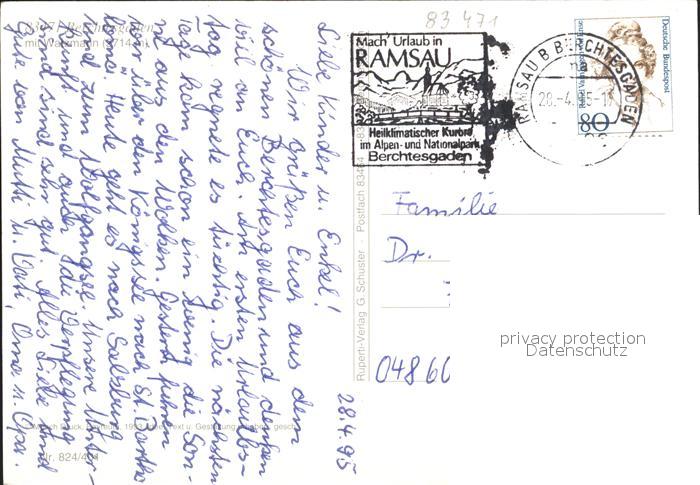 83471 Berchtesgaden
mit Watzmann (2714 m)
83 471
28.4.95
Liebe Kinder u. Enkel!
Wir grüßen Euch aus dem
schönen Berchtesgaden und denken
viel an Euch. Am ersten Urlaubs-
tag regnete es tüchtig. Die nächsten
Tage kam schon ein wenig die Son-
ne aus den Wolken. Gestern fuhren
wir über den Königssee nach St. Bartho-
lomä. Heute geht es nach Salzburg
und zum Wolfgangsee. Unsere Unter-
kunft und auch die Verpflegung
sind sehr gut. Alles Liebe und
Gute von Mutti u. Vati, Oma u. Opa.
Mach' Urlaub in
RAMSAU
Heilklimatischer Kurort
im Alpen- und Nationalpark
Berchtesgaden
RAMSAU B BERCHTESGADEN
na
28.-4.
Deutsche Bundespost
80
Rupert-Verlag G. Schuster · Postfach
Familie
Dr.
0486
privacy protection
Datenschutz
Nr. 824/